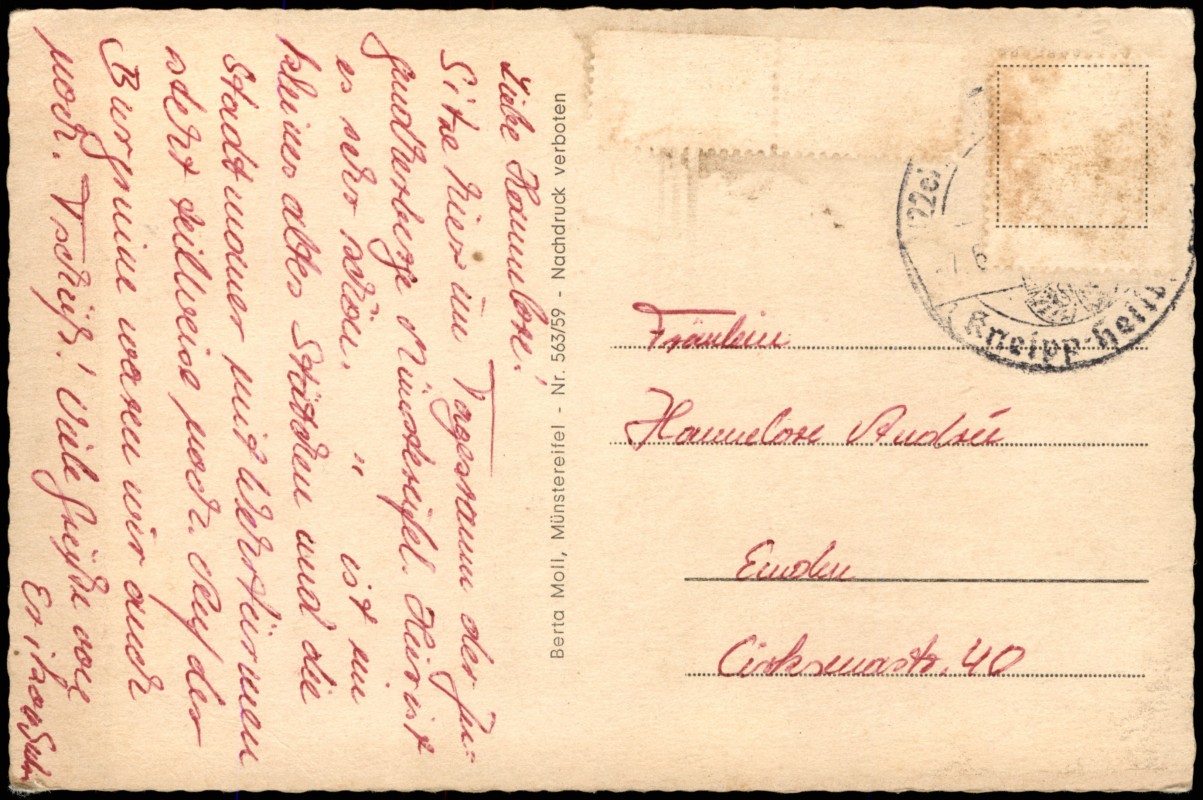 Liebe Hannelore!
Sitze hier im Tagesraum der Ju=
gendherberge Münstereifel. Hier ist
es sehr schön. " ist ein
kleines altes Städtchen und die
Stadtmauer mit Wehrtürmen
steht teilweise noch. Auf der
Burgruine waren wir auch
noch. Tschüß! Viele Grüße von
Berta Moll, Münstereifel - Nr. 563/59 - Nachdruck verboten
(22c)
Kneipp-Heilb
Fräulein
Hannelore Andrée
Emden
Cirksenastr. 40